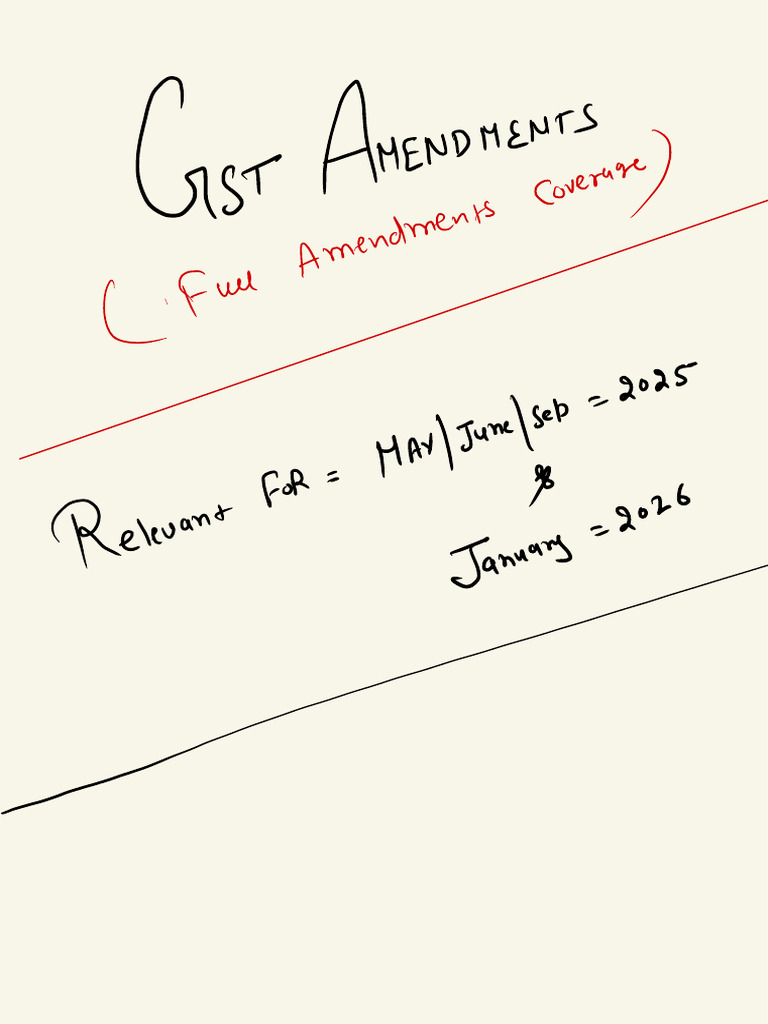 GST AMENDMENTS
(Full Amendments Coverage)
Relevant FOR = MAY/June/Sep = 2025
&
January = 2026